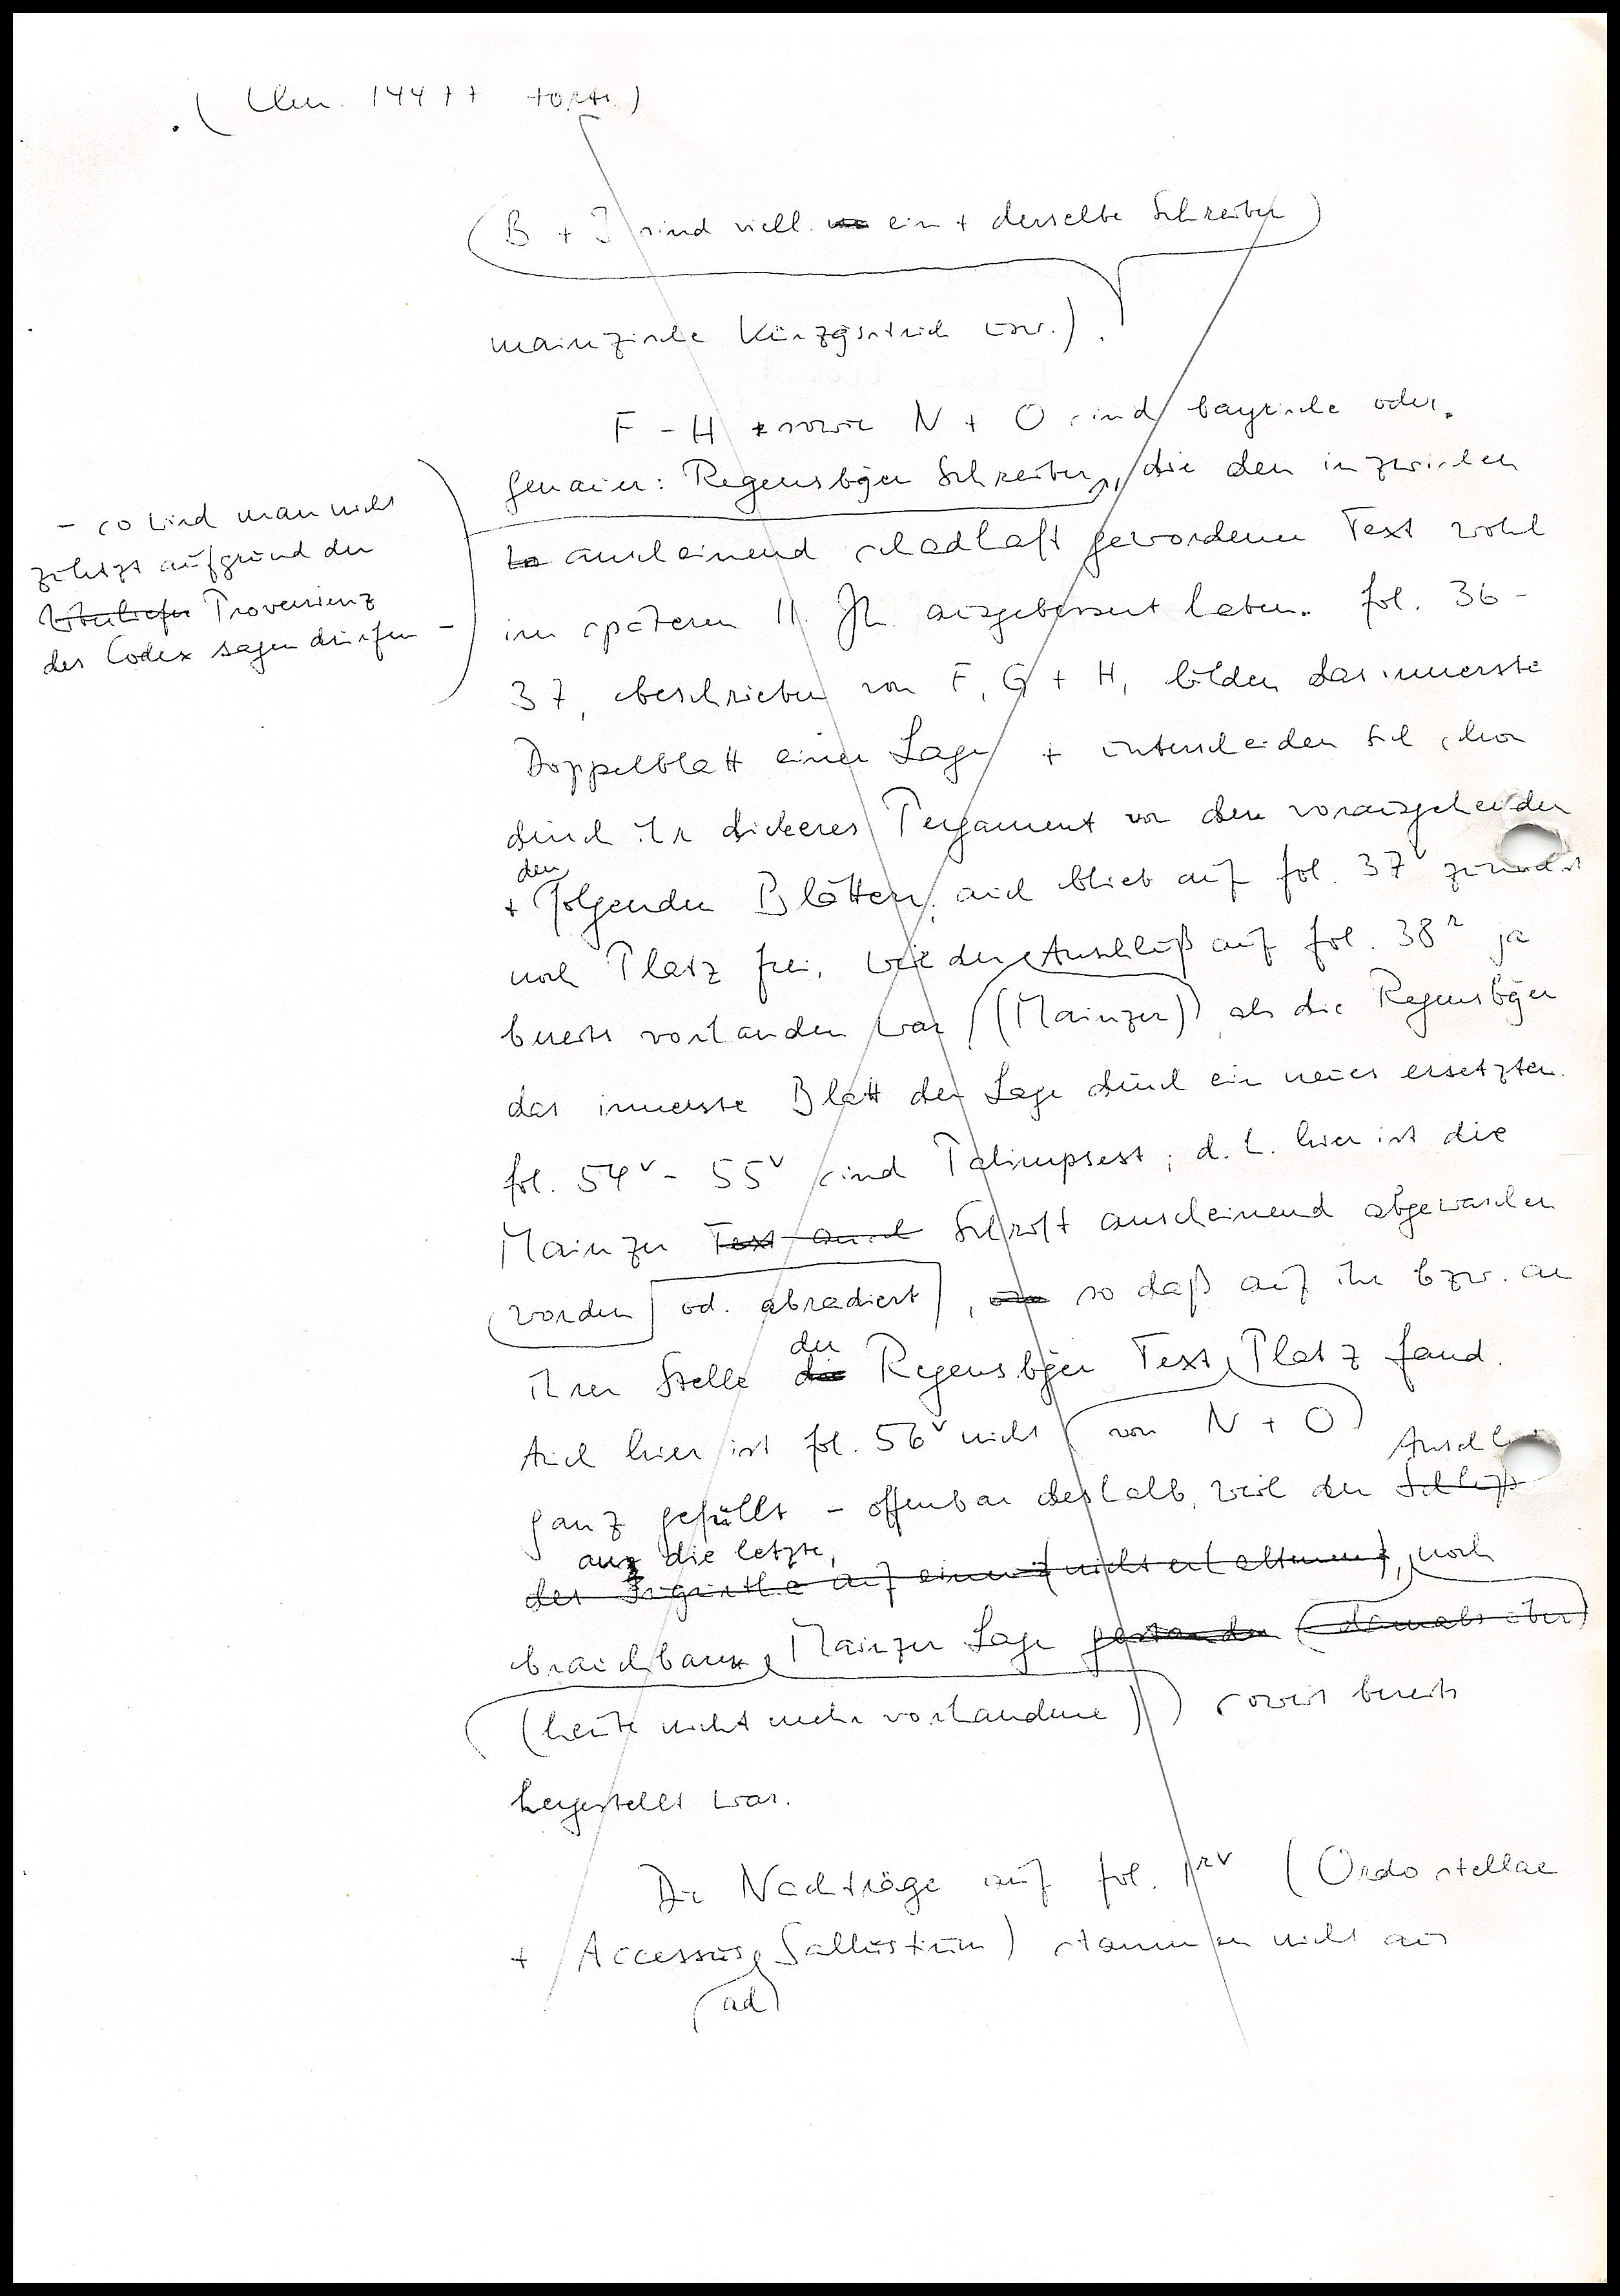 (Clm. 14477 Forts.)
(B + I sind viell. ein + derselbe Schreiber)
mainzische Kürzgsstrich usw.).
F - H sowie N + O sind bayrische oder
genauer: Regensbger Schreiber, die den inzwischen
- so wird man nicht
zuletzt aufgrund der
Überliefer Provenienz
des Codex sagen dürfen -
anscheinend schadhaft gewordenen Text wohl
im späteren 11. Jh. ausgebessert haben. fol. 36 -
37, beschrieben von F, G + H, bilden das innerste
Doppelblatt einer Lage + unterscheiden sich schon
durch ihr dickeres Pergament von den vorausgehenden
den
+ folgenden Blättern, auch blieb auf fol. 37v zunächst
noch Platz frei, weil der Anschluß auf fol. 38r ja
bereits vorhanden war (Mainzer), als die Regensbger
das innerste Blatt der Lage durch ein neues ersetzten.
fol. 54v - 55v sind Palimpsest, d. h. hier ist die
Mainzer Text Schrift anscheinend abgewaschen
worden od. abradiert, so daß auf ihr bzw. an
der
ihrer Stelle die Regensbger Text Platz fand.
Auch hier ist fol. 56v nicht von N + O
Anschluß
ganz gefüllt - offenbar deshalb, weil der Schluß
auf die letzte,
der auf einer (nicht erhaltenen), noch
brauchbare Mainzer Lage gestanden (damals aber)
(heute nicht mehr vorhandene) soweit bereits
hergestellt war.
Die Nachträge auf fol. 1rv (Ordo stellae
+ Accessus Sallustium) stammen nicht aus
ad